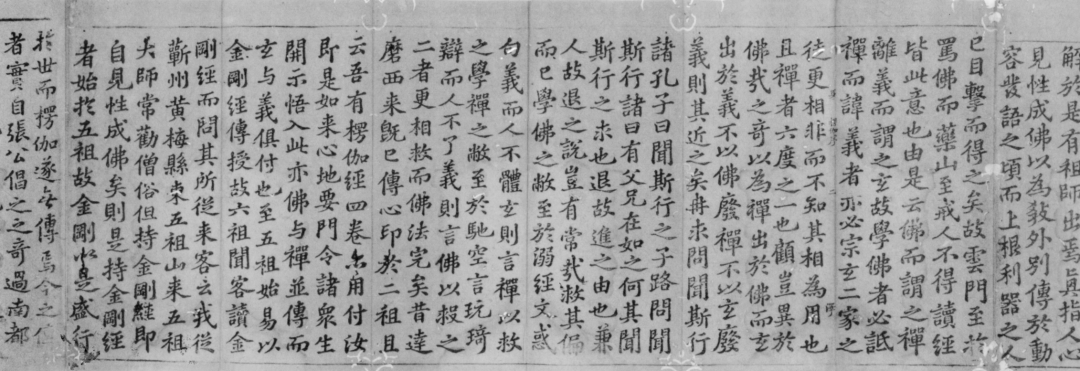 解於是有祖師出焉直指人心
見性成佛以為教外別傳於動
容發語之頃而上根利器之人
已目擊而得之矣故雲門至於
罵佛而藥山至戒人不得讀經
皆此意也由是云佛而謂之禪
離義而謂之玄故學佛者必詆
禪而諱義者亦必宗玄二家之
徒更相非而不知其相為用也
且禪者六度之一也顧豈異於
佛哉之奇以為禪出於佛而玄
出於義不以佛廢禪不以玄廢
義則其近之矣冉求問聞斯行
諸孔子曰聞斯行之子路問聞
斯行諸曰有父兄在如之何其聞
斯行之求也退故進之由也兼
人故退之說豈有常哉救其偏
而已學佛之敝至於溺經文惑
句義而人不體玄則言禪以救
之學禪之敝至於馳空言玩琦
辯而人不了義則言佛以救之
二者更相救而佛法完矣昔達
磨西来既已傳心印於二祖且
云吾有楞伽經四卷亦用付汝
即是如来心地要門令諸衆生
開示悟入此亦佛與禪並傳而
玄与義俱付也至五祖始易以
金剛經傳授故六祖聞客讀金
剛經而問其所從来客云我從
蘄州黄梅縣東五祖山来五祖
大師常勸僧俗但持金剛經即
自見性成佛矣則是持金剛經
者始於五祖故金剛以是盛行
於世而楞伽遂無傳焉今之傳
者實自張公倡之之奇過南都